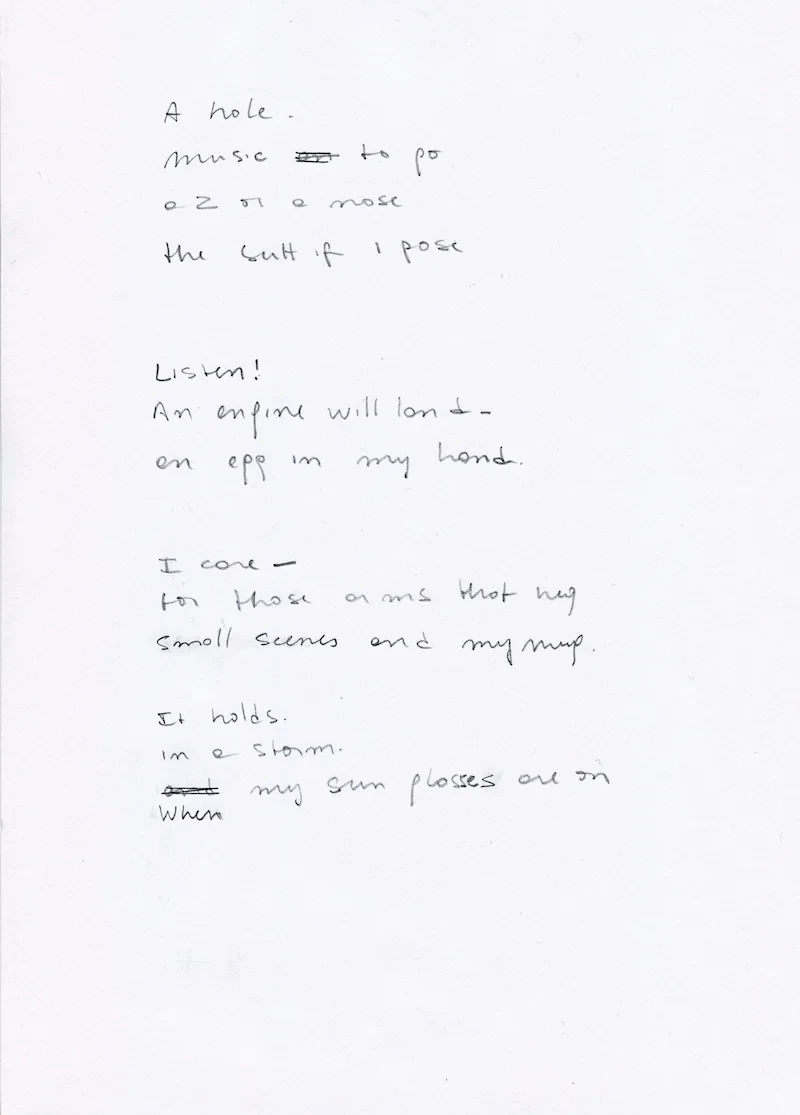 A hole.
music to go
a z or a nose
the butt if I pose
Listen!
An engine will land -
an egg in my hand.
I care -
for those arms that hug
small scenes and my mug.
It holds.
in a storm.
When my sun glasses are on